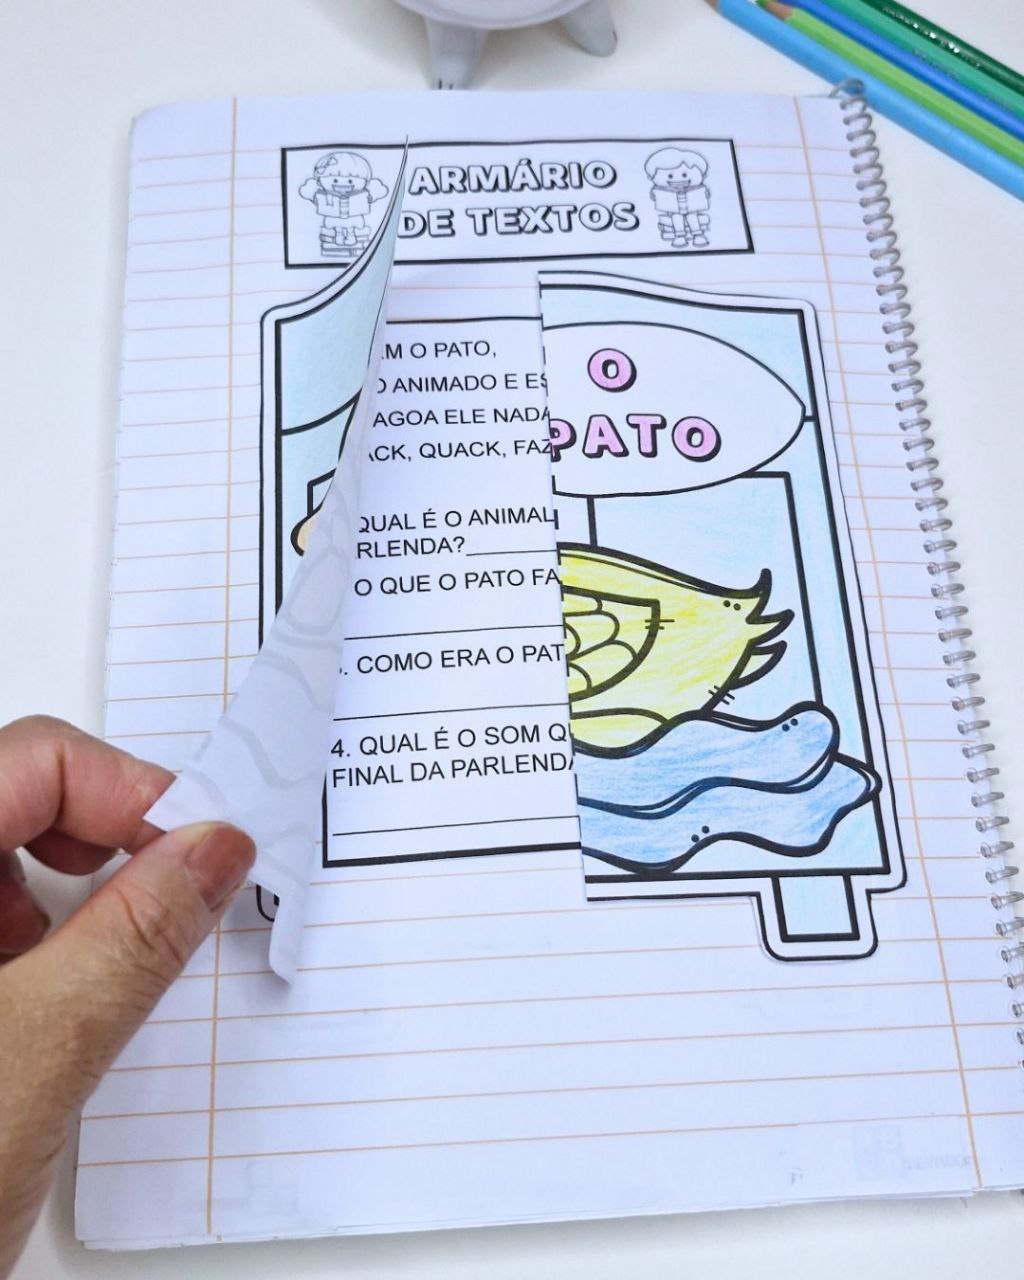 ARMÁRIO
DE TEXTOS
O
PATO
M O PATO,
ANIMADO E
AGOA ELE NADA
CK, QUACK, FAZ
QUAL É O ANIMAL
RLENDA?
O QUE O PATO FA
. COMO ERA O PAT
4. QUAL É O SOM Q
FINAL DA PARLENDA